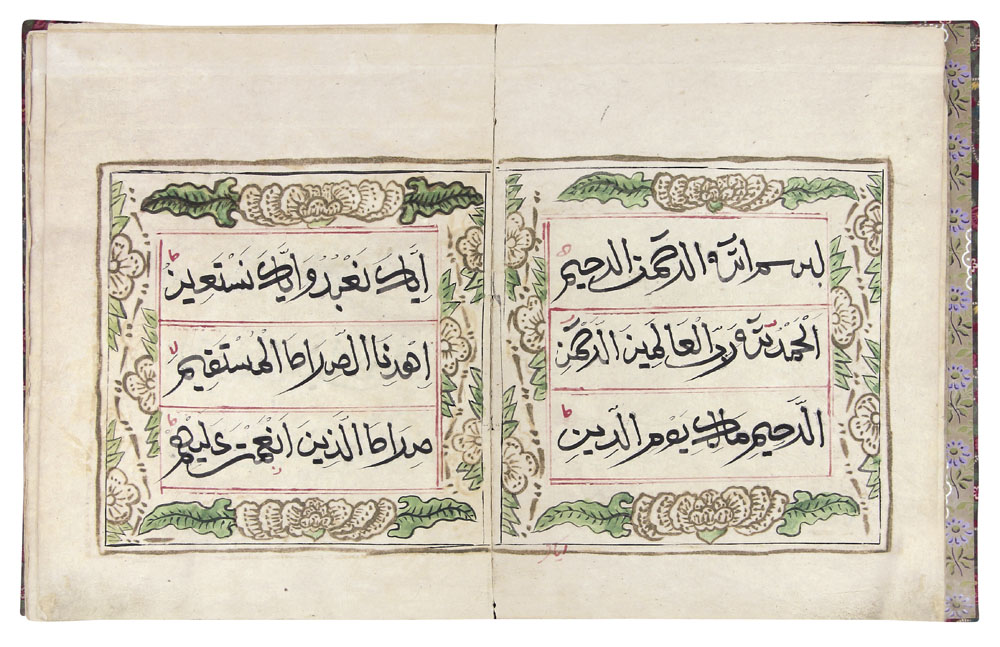 بسم الله الرحمن الرحيم
الْحَمْدُ لله رب الْعَالَمِينَ الرَّحْمَنِ
الرَّحِيمِ مالك يَوْمِ الدِّينِ
اِيَّاكَ نَعْبُدُ وَاِيَّاكَ نَسْتَعِينُ
اِهْدِنَا الصِّرَاطَ الْمُسْتَقِيمَ
صِرَاطَ الَّذِينَ اَنْعَمْتَ عَلَيْهِمْ